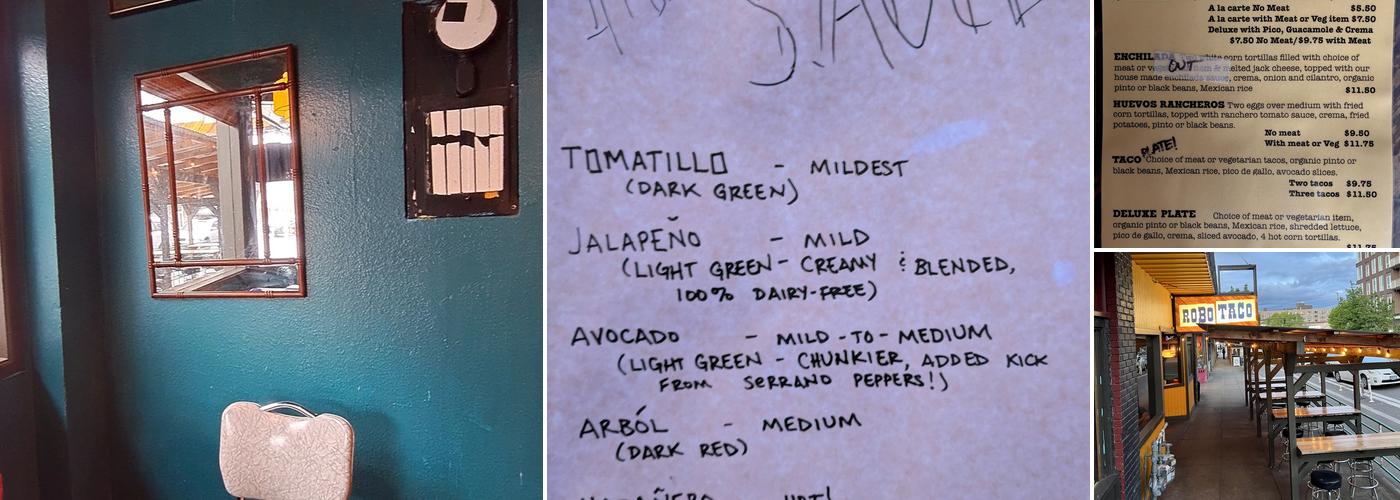 TOMATILLO - MILDEST
(DARK GREEN)
JALAPEÑO - MILD
(LIGHT GREEN - CREAMY & BLENDED,
100% DAIRY-FREE)
AVOCADO - MILD-TO-MEDIUM
(LIGHT GREEN - CHUNKIER, ADDED KICK
FROM SERRANO PEPPERS!)
ARBÓL - MEDIUM
(DARK RED)
A la carte No Meat $5.50
A la carte with Meat or Veg item $7.50
Deluxe with Pico, Guacamole & Crema
$7.50 No Meat/$9.75 with Meat
OUT
corn tortillas filled with choice of
meat or & melted jack cheese, topped with our
house made enchilada sauce, crema, onion and cilantro, organic
pinto or black beans, Mexican rice $11.50
HUEVOS RANCHEROS Two eggs over medium with fried
corn tortillas, topped with ranchero tomato sauce, crema, fried
potatoes, pinto or black beans.
No meat $9.50
With meat or Veg $11.75
PLATE!
TACO Choice of meat or vegetarian tacos, organic pinto or
black beans, Mexican rice, pico de gallo, avocado slices.
Two tacos $9.75
Three tacos $11.50
DELUXE PLATE Choice of meat or vegetarian item,
organic pinto or black beans, Mexican rice, shredded lettuce,
pico de gallo, crema, sliced avocado, 4 hot corn tortillas.
ROBO TACO